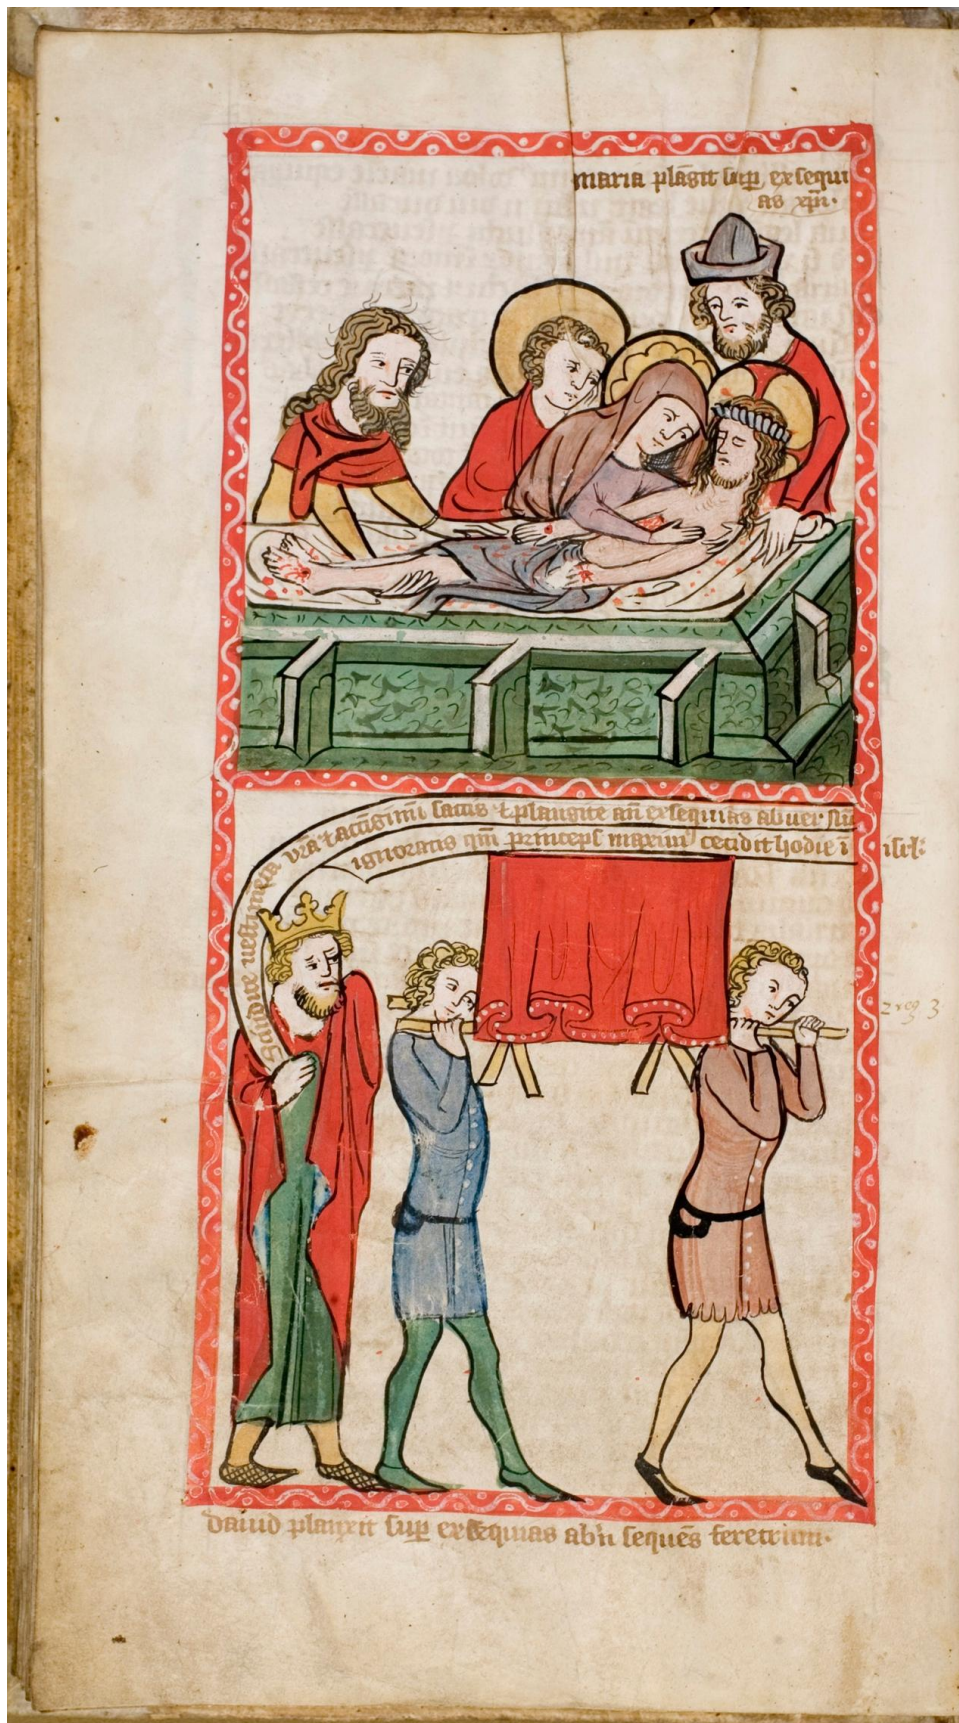 maria plāgit sup̲ exsequi
as xp̄i·
Scindite vestimenta vr̄a ⁊ accīgimī saccis ⁊ plangite an̄ exsequias abner Nū
ignoratis qm̄ princeps maximꝰ cecidit hodie ī isrl̄·
2 reg 3
dauid planxit sup̲ exsequias abn̄ sequēs feretrum·